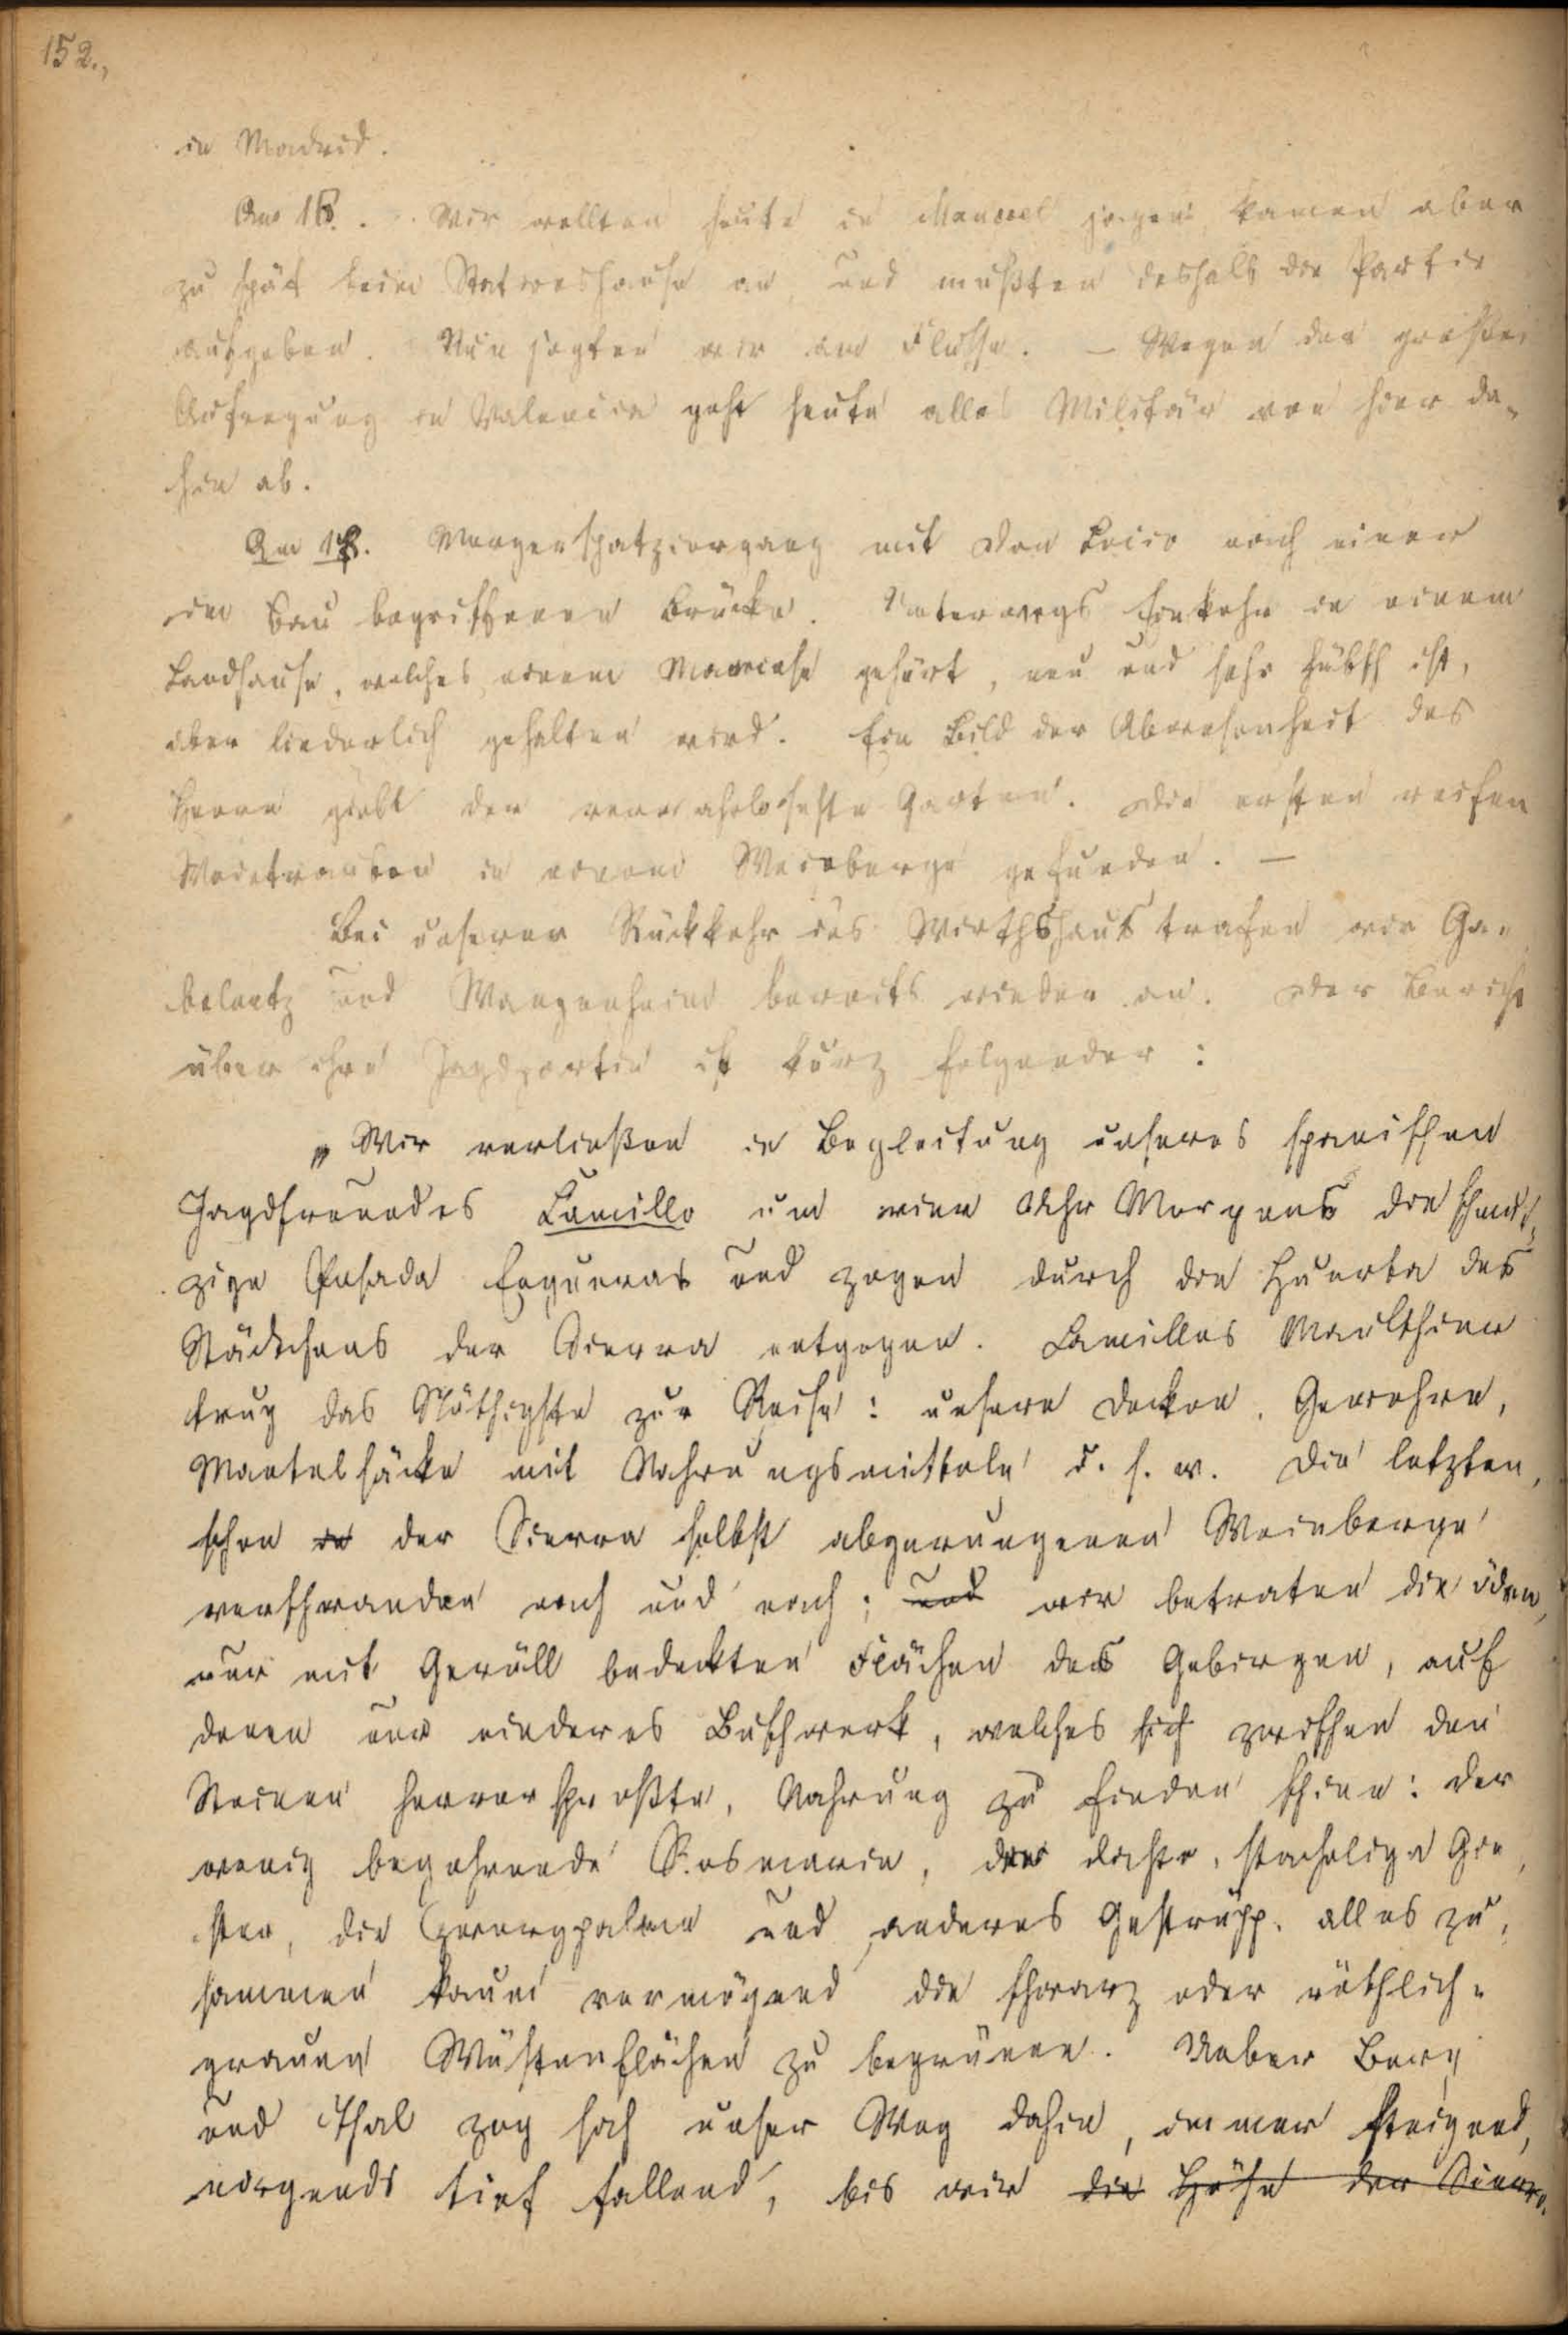 152.,
in Madrid.
Am 16. Wir wollten heute in Manuel jagen, kamen aber
zu spät beim Stationshause an, und mußten deshalb die Partie
aufgeben. Nun jagten wir am Flusse. – Wegen der großen
Aufregung in Valencia geht heute alles Militär von hier da-
hin ab.
Am 17. Morgenspatziergang mit Don Lucio nach einer
im Bau begriffenen Brücke. Unterwegs Einkehr in einem
Landhause, welches einem gehört, neu und sehr hübsch ist,
aber liederlich gehalten wird. Ein Bild der Abwesenheit des
Herrn giebt der verwahrloseste Garten. Die ersten reifen
Weintrauben in einem Weinberge gefunden. –
Bei unserer Rückkehr ins Wirthshaus trafen wir Ga-
belentz und Wangenheim bereits wieder an. Der Bericht
über ihre Jagdpartie ist kurz folgender:
„Wir verließen in Begleitung unseres spanischen
Jagdfreundes Camillo um vier Uhr Morgens die schmut-
zige Posada Engueras und zogen durch die Huerta des
Städtchens der Sierra entgegen. Camillos Maulthier
trug das Nöthigste zur Reise: unsere Decken, Gewehre,
Mantelsäcke mit Nahrungsmitteln u. s. w. Die letzten,
schon in der Sierra selbst abgerungenen Weinberge
verschwanden nach und nach; und wir betraten die öden,
nur mit Geröll bedeckten Flächen des Gebirges, auf
denen nur niederes Buschwerk, welches sich zwischen den
Steinen hervorsproßte, Nahrung zu finden schien: der
wenig begehrende Rosmarin, der dichte, stachelige Gin-
ster, die Zwergpalme und anderes Gestrüpp, alles zu-
sammen kaum vermögend die schwarz oder röthlich-
grauen Wüstenflächen zu begrünen. Ueber Berg
und Thal zog sich unser Weg dahin, immer steigend,
nirgends tief fallend, bis wir die Höhe der Sierra